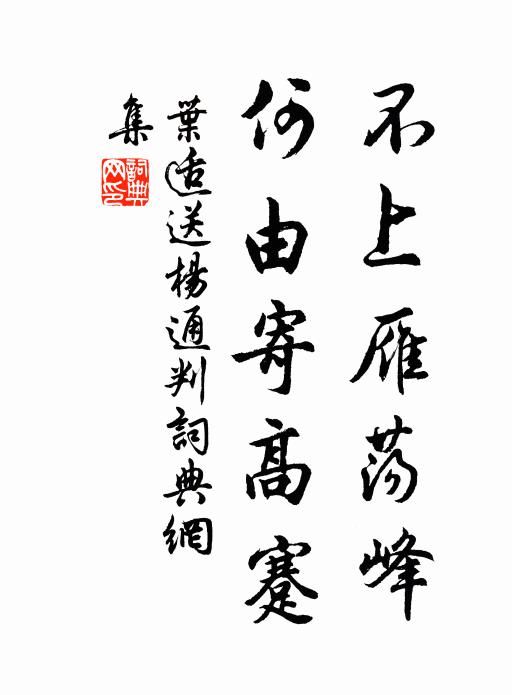 不上雁荡峰
何由寄高蹇
葉适送楊通判詞典網
集
詞典網印